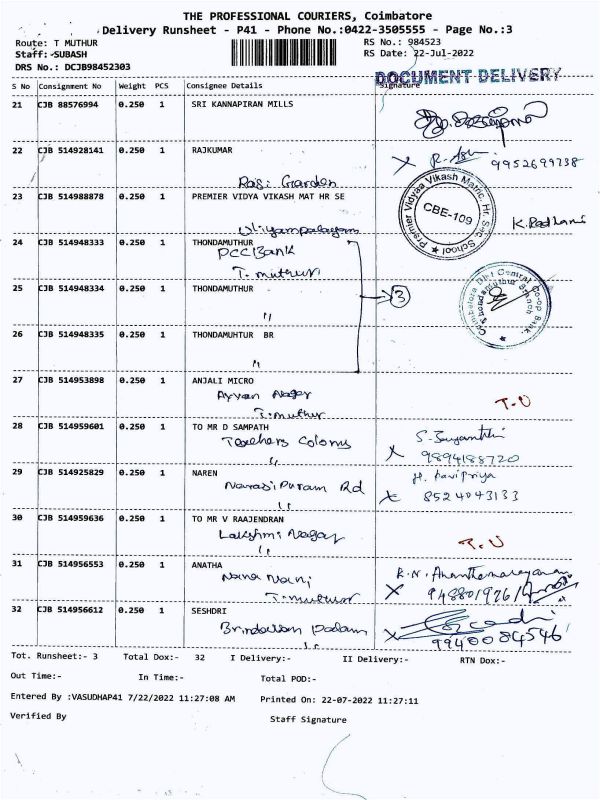 THE PROFESSIONAL COURIERS, Coimbatore
Delivery Runsheet - P41 - Phone No.:0422-3505555 - Page No.:3
Route: T MUTHUR RS No.: 984523
Staff: SUBASH RS Date: 22-Jul-2022
DRS No.: DCJB98452303
DOCUMENT DELIVERY
S No Consignment No Weight PCS Consignee Details Signature
21 CJB 88576994 0.250 1 SRI KANNAPIRAN MILLS
22 CJB 514928141 0.250 1 RAJKUMAR
9952699738
Raji Garden
23 CJB 514988878 0.250 1 PREMIER VIDYA VIKASH MAT HR SE
Premier Vidyaa Vikash Matric. Hr. Sec. School
CBE-109
Uliyampalayam
24 CJB 514948333 0.250 1 THONDAMUTHUR
DCCBank
T. muthur
25 CJB 514948334 0.250 1 THONDAMUTHUR
3
"
Coimbatore Dist Central Co-op Bank.
Thondamuthur Branch
26 CJB 514948335 0.250 1 THONDAMUHTUR BR
"
27 CJB 514953898 0.250 1 ANJALI MICRO
Ayyan Nagar
T. muthur
T.U
28 CJB 514959601 0.250 1 TO MR D SAMPATH
Teachers Colony
"
9894188720
29 CJB 514925829 0.250 1 NAREN
Narasipuram Rd
"
8524043133
30 CJB 514959636 0.250 1 TO MR V RAAJENDRAN
Lakshmi Nagar
"
T.U
31 CJB 514956553 0.250 1 ANATHA
Nana Nani
T. muthur
32 CJB 514956612 0.250 1 SESHDRI
9940084546
Tot. Runsheet:- 3 Total Dox:- 32 I Delivery:- II Delivery:- RTN Dox:-
Out Time:- In Time:- Total POD:-
Entered By :VASUDHAP41 7/22/2022 11:27:08 AM Printed On: 22-07-2022 11:27:11
Verified By Staff Signature